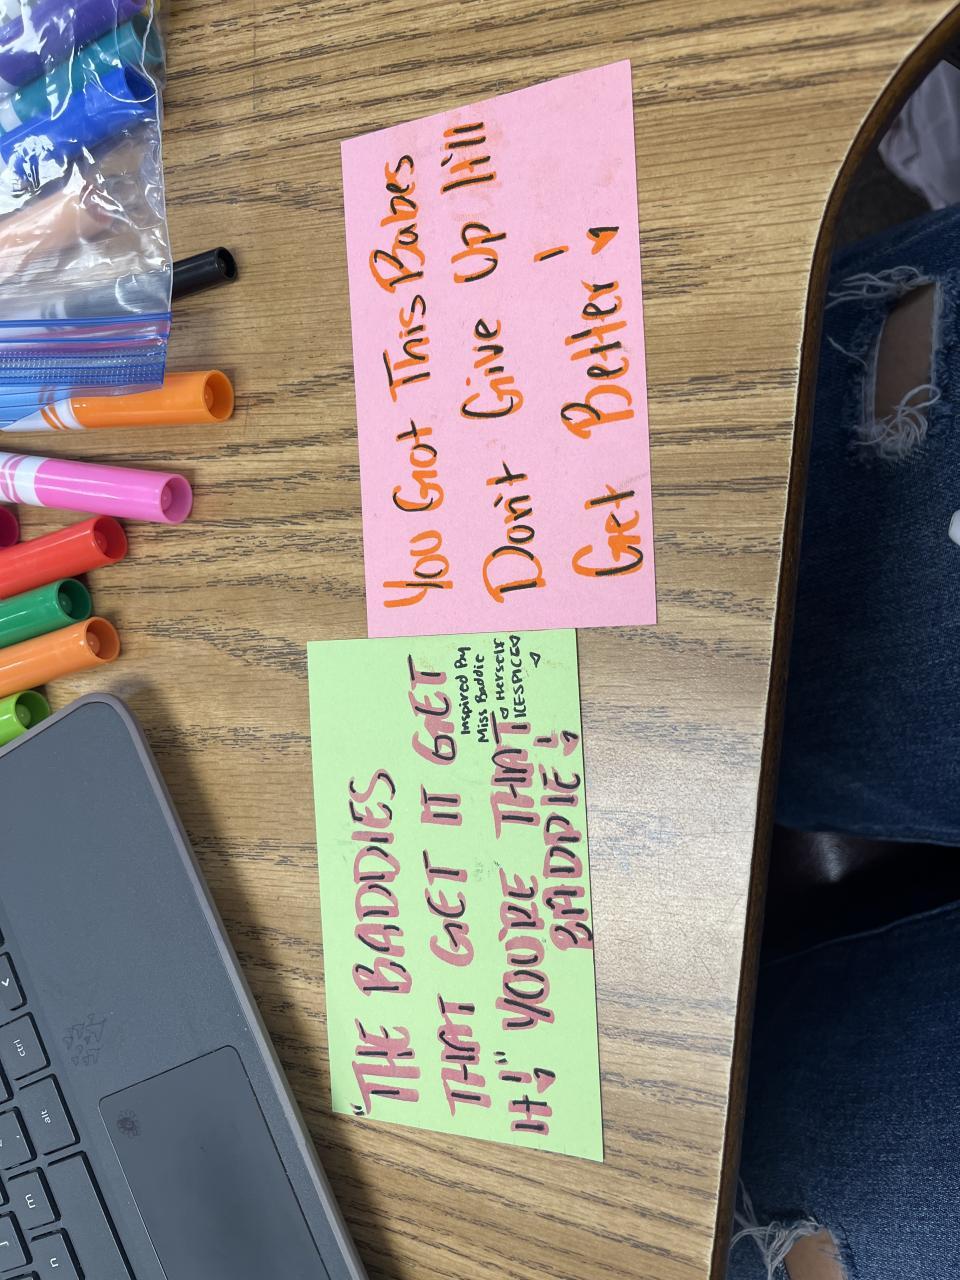 You Got This Babes
Don't Give Up till
Get Better!
"THE BADDIES
THAT GET IT GET
It!" YOU'RE THAT
BADDIE!
Inspired By
Miss Baddie
Herself
ICESPICE
ctrl
alt
m
n